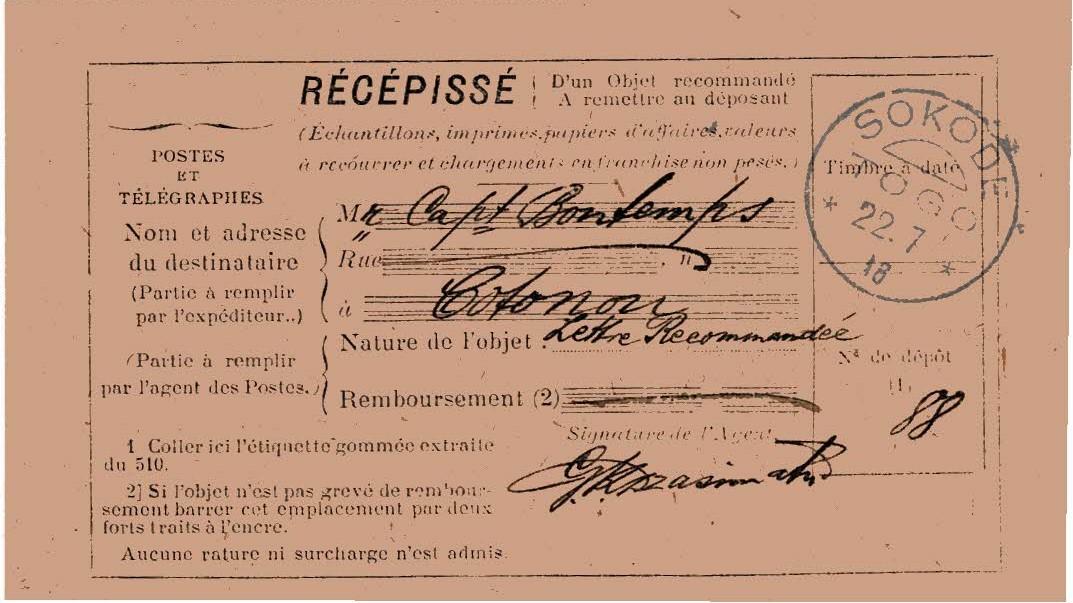 RÉCÉPISSÉ
D'un Objet recommandé
A remettre au déposant
(Échantillons, imprimés, papiers d'affaires, valeurs
à recouvrer et chargements en franchise non pesés.)
POSTES
ET
TÉLÉGRAPHES
Nom et adresse
du destinataire
(Partie à remplir
par l'expéditeur..)
Mr Capt Bontemps
Rue "
à Cotonou
(Partie à remplir
par l'agent des Postes.)
Nature de l'objet : Lettre Recommandée
Remboursement (2)
Signature de l'Agent
1 Coller ici l'étiquette gommée extraite
du 510.
2] Si l'objet n'est pas grevé de rembour-
sement barrer cet emplacement par deux
forts traits à l'encre.
Aucune rature ni surcharge n'est admis.
Timbre à date
SOKODE
TOGO
22.7
18
N° de dépôt
(1)
88